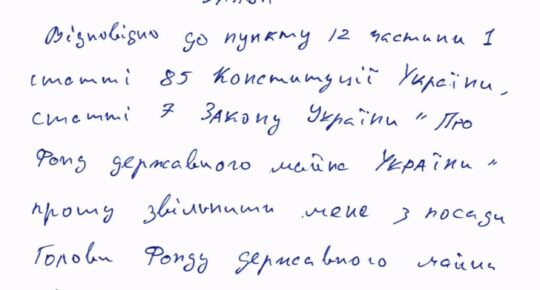 Відповідно до пункту 12 частини 1
статті 85 Конституції України,
статті 7 Закону України "Про
Фонд державного майна України"
прошу звільнити мене з посади
Голови Фонду державного майна